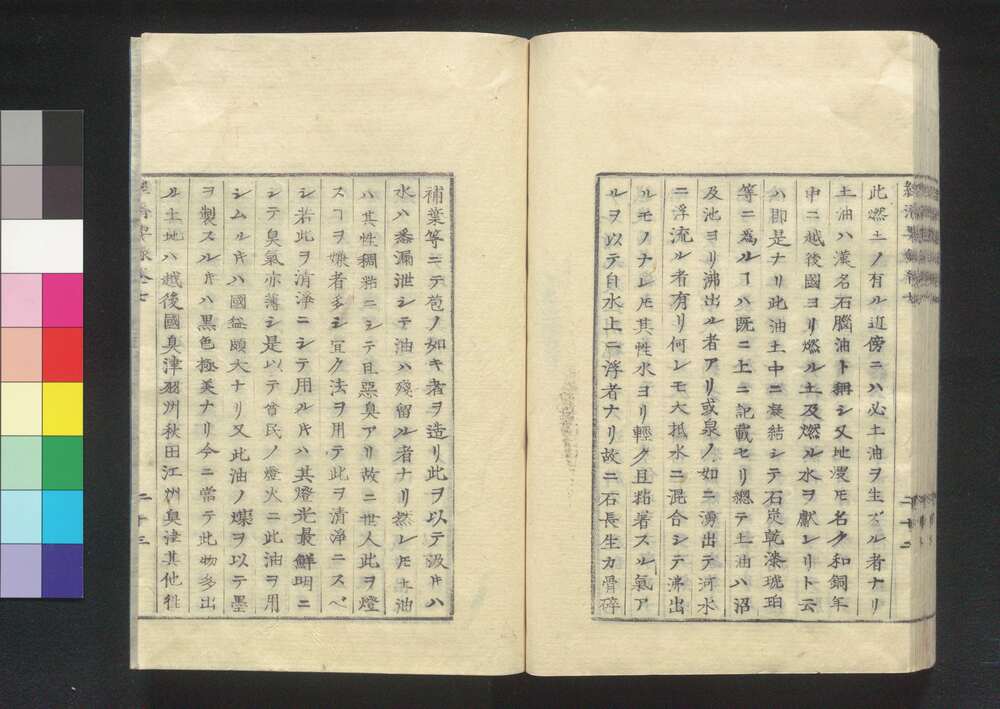 此燃土ノ有ル近傍ニハ必土油ヲ生ズル者ナリ
土油ハ漢名石腦油ト稱シ又地溲モ名ク和銅年
中ニ越後國ヨリ燃ル土及燃ル水ヲ獻レリト云
ハ即是ナリ此油土中ニ凝結シテ石炭乾漆琥珀
等ニ為ルヿハ既ニ上ニ記載セリ總テ土油ハ沼
及池ヨリ沸出ル者アリ或泉ノ如ニ湧出テ河水
ニ浮流ル者有リ何レモ大抵水ニ混合シテ沸出
ルモノナレ𪜈其性水ヨリ輕ク且粘著スル氣ア
ルヲ以テ自水上ニ浮者ナリ故ニ石長生カ骨碎
二十二
補葉等ニテ苞ノ如キ者ヲ造リ此ヲ以テ汲𪜈ハ
水ハ悉漏泄シテ油ハ殘留ル者ナリ然レ𪜈土油
ハ其性稠粘ニシテ且惡臭アリ故ニ世人此ヲ燈
スヿヲ嫌者多シ宜ク法ヲ用テ此ヲ清淨ニスベ
シ若此ヲ清淨ニシテ用ル𪜈ハ其燈光最鮮明ニ
シテ臭氣亦薄シ是以テ皆民ノ燈火ニ此油ヲ用
シムル𪜈ハ國益頗大ナリ又此油ノ煤ヲ以テ墨
ヲ製スル𪜈ハ黒色極美ナリ今ニ當テ此物多出
ル土地ハ越後國臭津羽州秋田江州臭津其他往
二十三